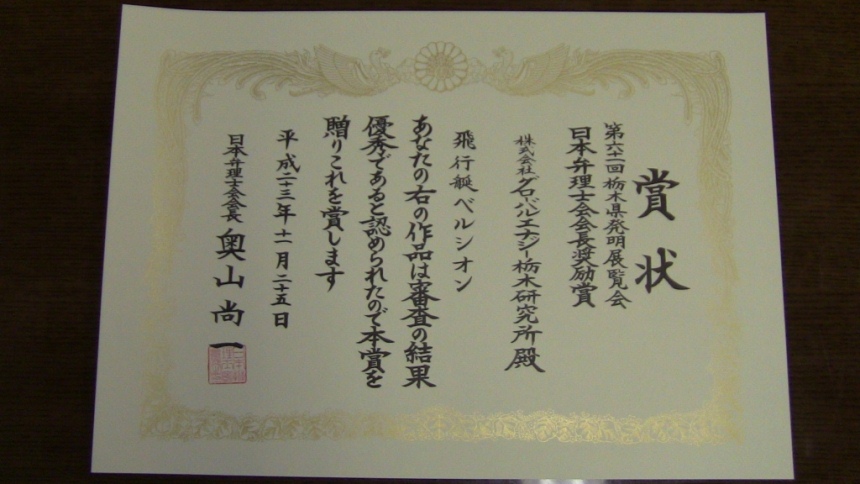 賞状
第六十一回 栃木県発明展覧会
日本弁理士会会長奨励賞
株式会社グローバルエナジー栃木研究所殿
飛行艇ベルシオン
あなたの右の作品は審査の結果
優秀であると認められたので本賞を
贈りこれを賞します
平成二十三年十一月二十五日
日本弁理士会会長 奥山尚一